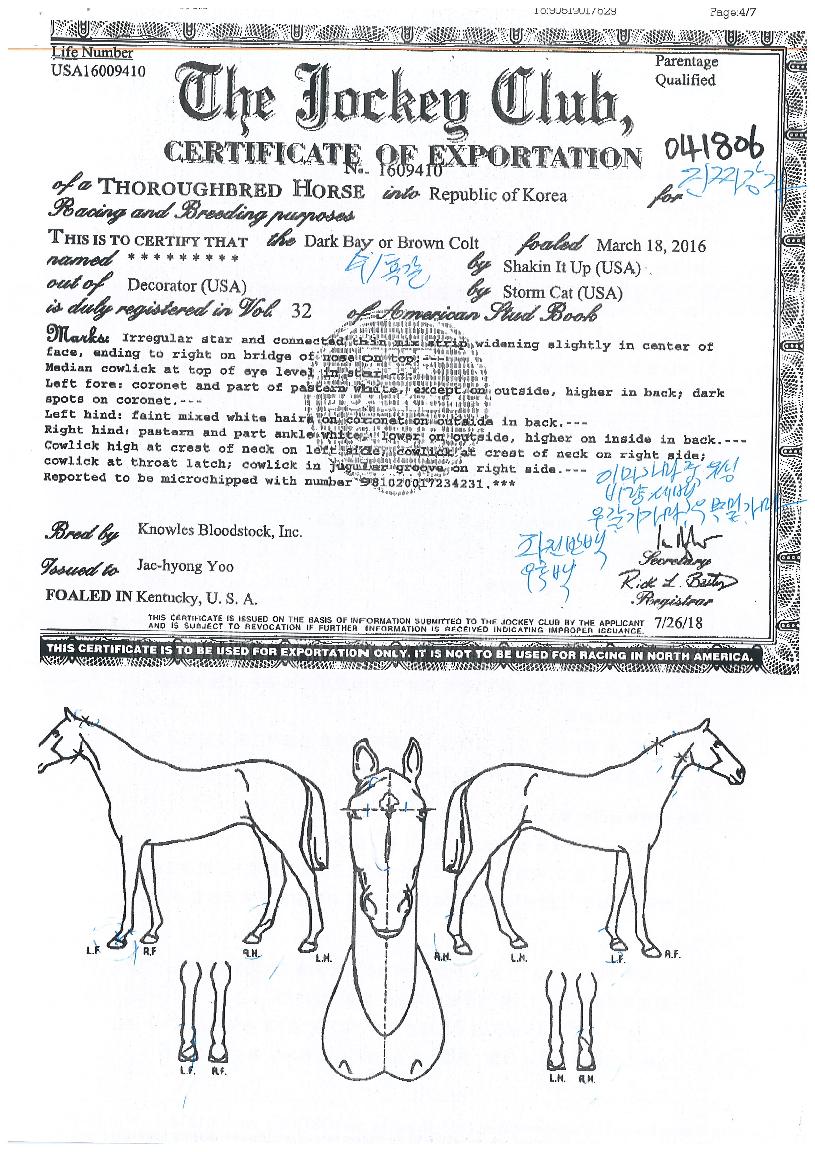 Page:4/7
Life Number
USA16009410
Parentage
Qualified
The Jockey Club,
CERTIFICATE OF EXPORTATION
041806
No. 1609410
of a THOROUGHBRED HORSE into Republic of Korea for
Racing and Breeding purposes
THIS IS TO CERTIFY THAT the Dark Bay or Brown Colt foaled March 18, 2016
named * * * * * * * * * by Shakin It Up (USA)
out of Decorator (USA) by Storm Cat (USA)
is duly registered in Vol. 32 of American Stud Book
Marks: Irregular star and connected thin mix strip widening slightly in center of
face, ending to right on bridge of nose on top.---
Median cowlick at top of eye level in star.---
Left fore: coronet and part of pastern white, except on outside, higher in back; dark
spots on coronet.---
Left hind: faint mixed white hairs on coronet on outside in back.---
Right hind: pastern and part ankle white, lower on outside, higher on inside in back.---
Cowlick high at crest of neck on left side; cowlick at crest of neck on right side;
cowlick at throat latch; cowlick in jugular groove on right side.---
Reported to be microchipped with number 981020017234231.***
Bred by Knowles Bloodstock, Inc.
Secretary
Issued to Jae-hyong Yoo
Rick L. Bailey
Registrar
FOALED IN Kentucky, U. S. A.
THIS CERTIFICATE IS ISSUED ON THE BASIS OF INFORMATION SUBMITTED TO THE JOCKEY CLUB BY THE APPLICANT
AND IS SUBJECT TO REVOCATION IF FURTHER INFORMATION IS RECEIVED INDICATING IMPROPER ISSUANCE.
7/26/18
THIS CERTIFICATE IS TO BE USED FOR EXPORTATION ONLY. IT IS NOT TO BE USED FOR RACING IN NORTH AMERICA.
L.F. R.F. R.H. L.H. R.H. L.H. L.F. R.F.
L.F. R.F. L.H. R.H.